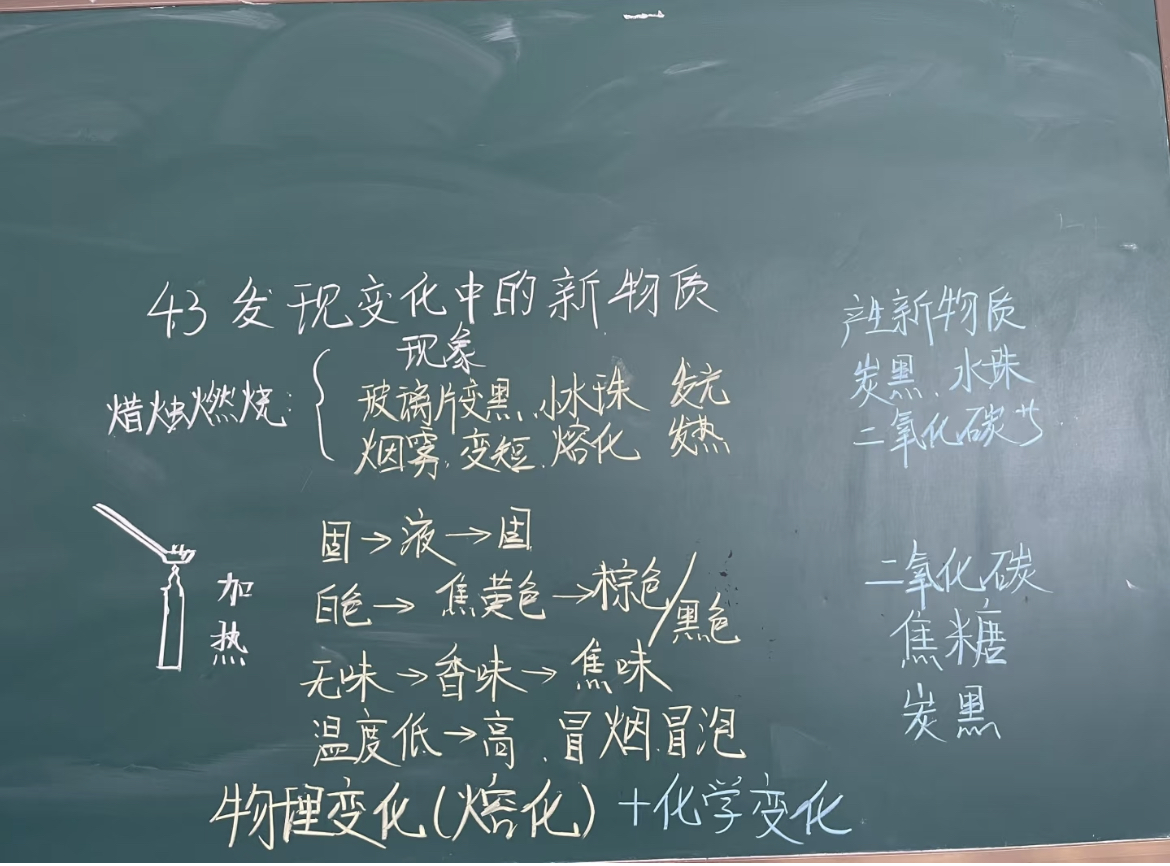 4.3 发现变化中的新物质
现象
蜡烛燃烧:
玻璃片变黑、小水珠 发光
烟雾、变短、熔化 发热
产生新物质
炭黑、水珠
二氧化碳
加热
固→液→固
白色→焦黄色→棕色/黑色
无味→香味→焦味
温度低→高、冒烟冒泡
二氧化碳
焦糖
炭黑
物理变化(熔化)+化学变化